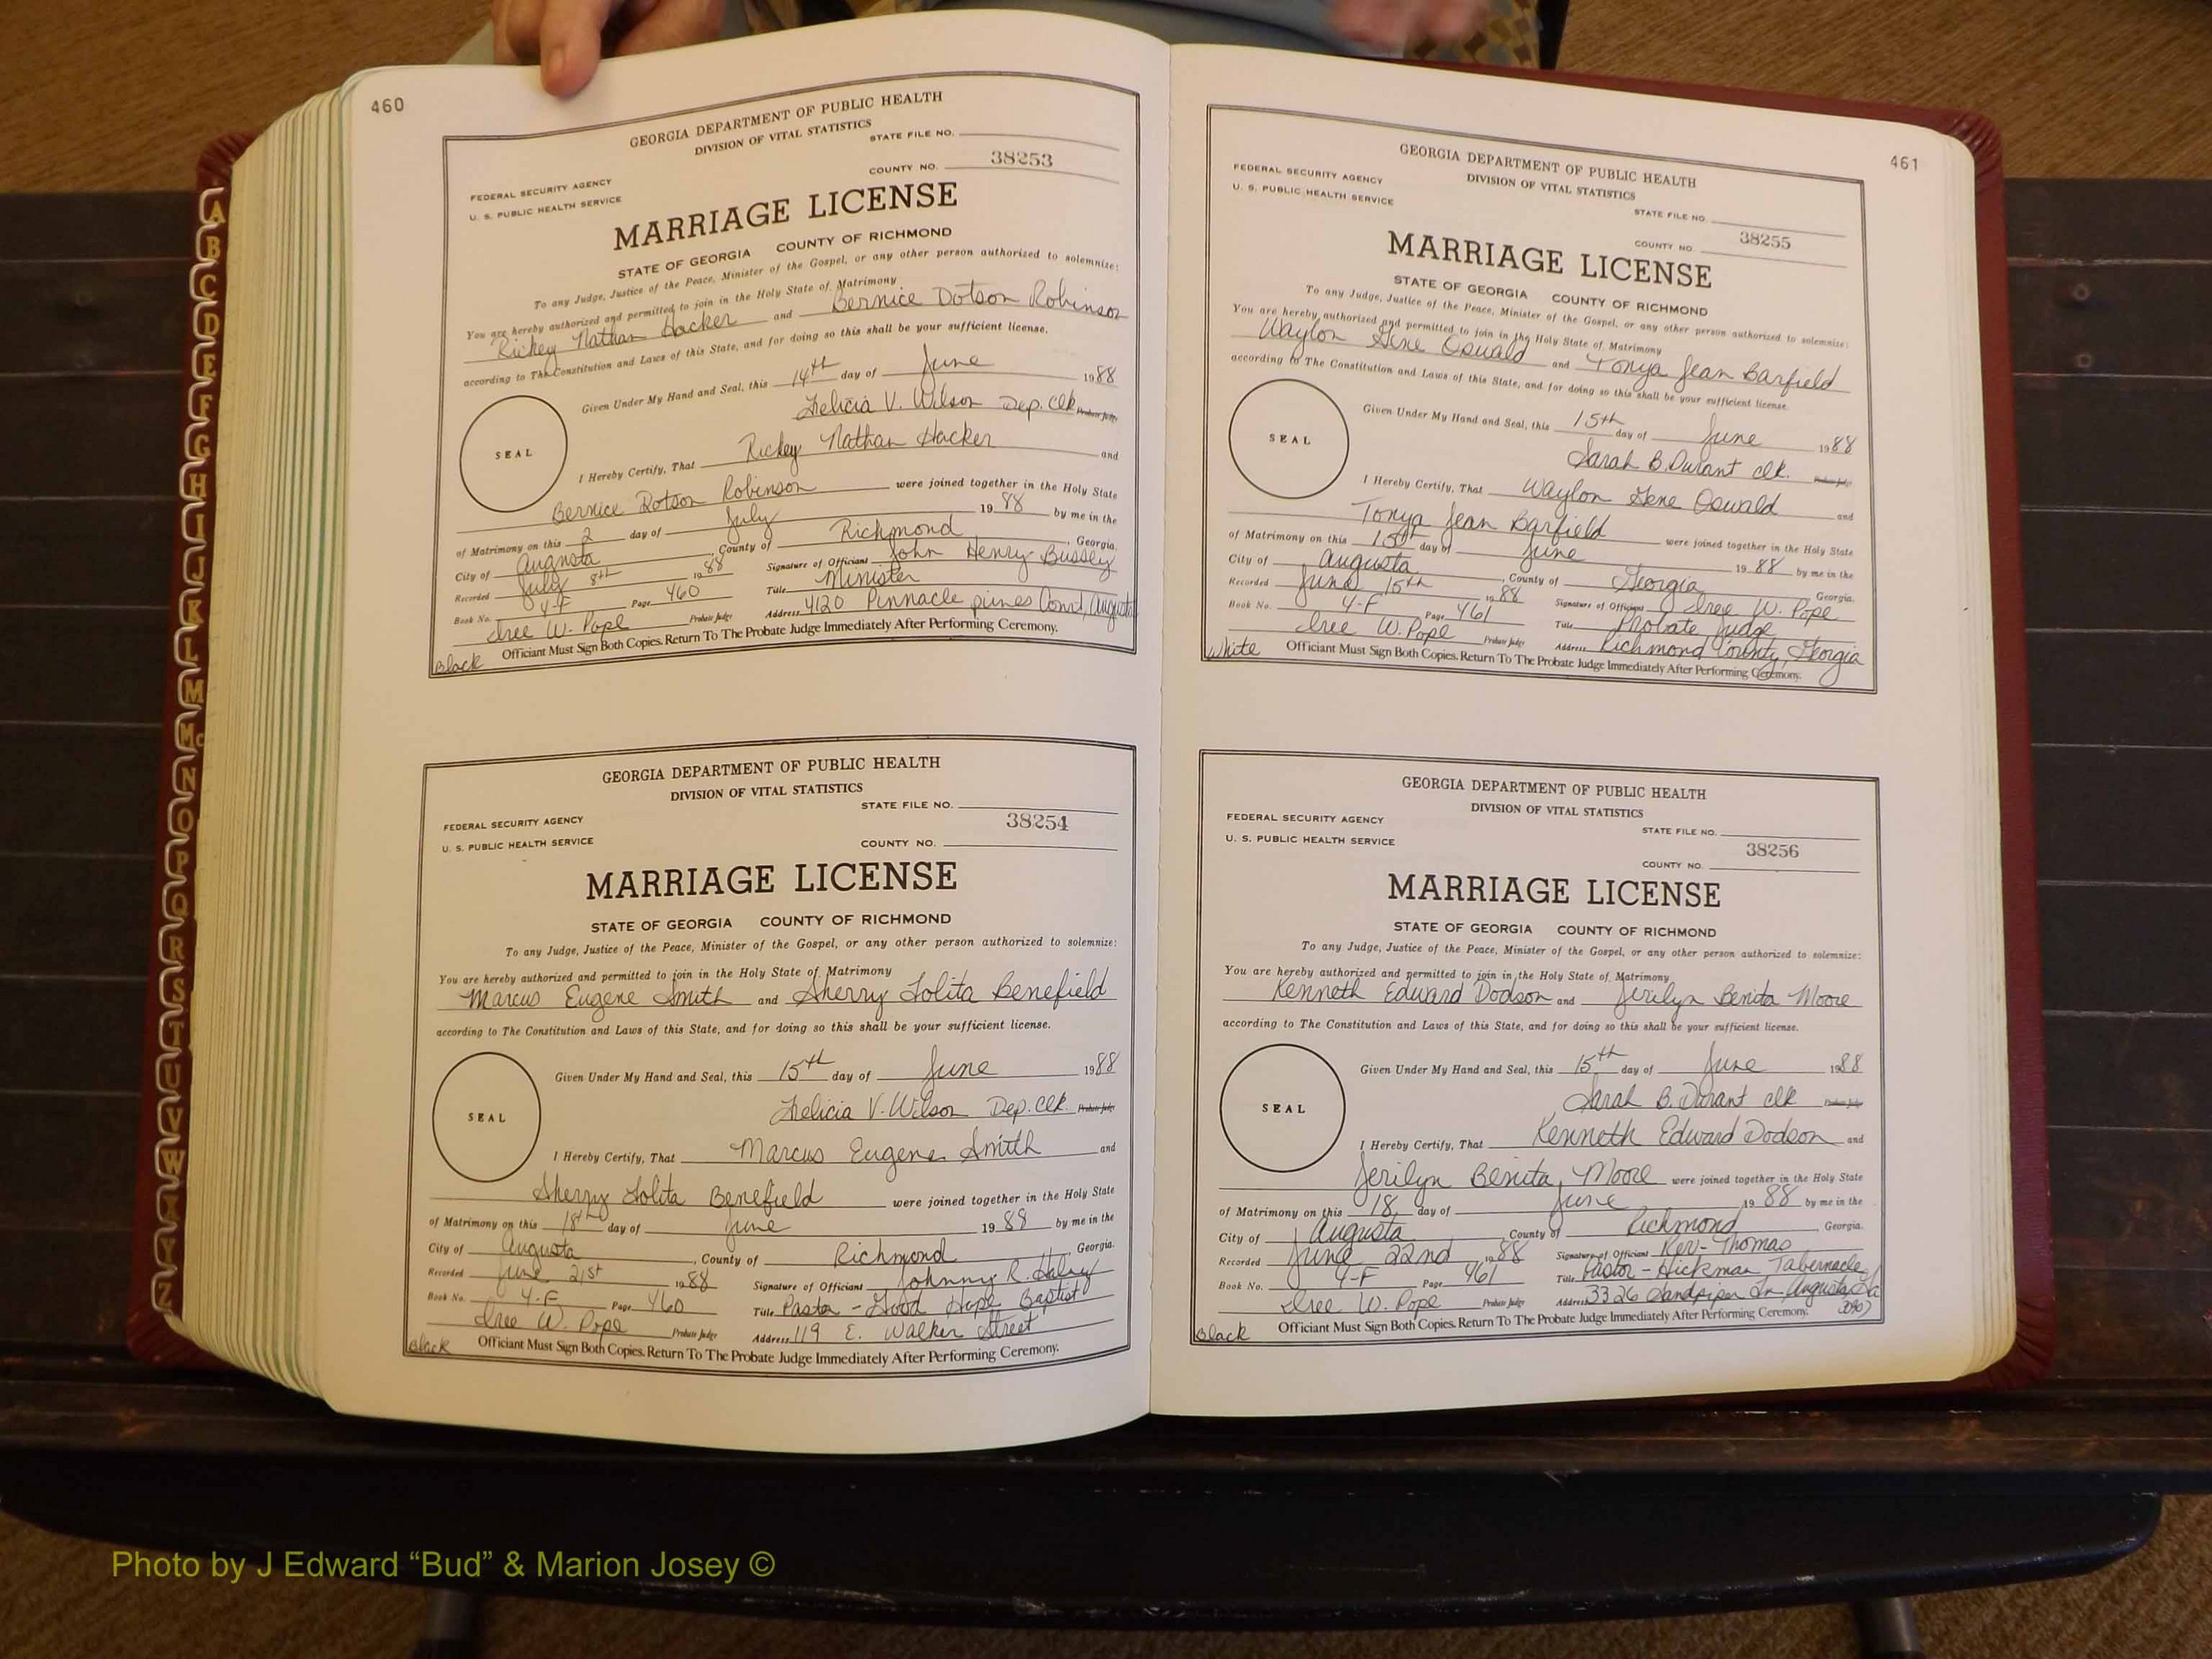 460
GEORGIA DEPARTMENT OF PUBLIC HEALTH
DIVISION OF VITAL STATISTICS
STATE FILE NO.
38253
COUNTY NO.
FEDERAL SECURITY AGENCY
U. S. PUBLIC HEALTH SERVICE
MARRIAGE LICENSE
STATE OF GEORGIA COUNTY OF RICHMOND
To any Judge, Justice of the Peace, Minister of the Gospel, or any other person authorized to solemnize:
You are hereby authorized and permitted to join in the Holy State of Matrimony
Rickey Nathan Hacker and Bernice Dotson Robinson
according to The Constitution and Laws of this State, and for doing so this shall be your sufficient license.
Given Under My Hand and Seal, this 14th day of June 1988
Felicia V. Wilson Dep. Clk. Probate Judge
SEAL
I Hereby Certify, That Rickey Nathan Hacker and
Bernice Dotson Robinson were joined together in the Holy State
of Matrimony on this 2 day of July 1988 by me in the
City of Augusta, County of Richmond, Georgia.
Recorded July 8th 1988 Signature of Officiant John Henry Bussey
Book No. 4-F Page 460 Title Minister
Iree W. Pope Probate Judge Address 4120 Pinnacle pines Court, Augusta
Black Officiant Must Sign Both Copies. Return To The Probate Judge Immediately After Performing Ceremony.
GEORGIA DEPARTMENT OF PUBLIC HEALTH
DIVISION OF VITAL STATISTICS
STATE FILE NO.
38254
FEDERAL SECURITY AGENCY
U. S. PUBLIC HEALTH SERVICE COUNTY NO.
MARRIAGE LICENSE
STATE OF GEORGIA COUNTY OF RICHMOND
To any Judge, Justice of the Peace, Minister of the Gospel, or any other person authorized to solemnize:
You are hereby authorized and permitted to join in the Holy State of Matrimony
Marcus Eugene Smith and Sherry Lolita Benefield
according to The Constitution and Laws of this State, and for doing so this shall be your sufficient license.
Given Under My Hand and Seal, this 15th day of June 1988
Felicia V. Wilson Dep. Clk. Probate Judge
SEAL
I Hereby Certify, That Marcus Eugene Smith and
Sherry Lolita Benefield were joined together in the Holy State
of Matrimony on this 18th day of June 1988 by me in the
City of Augusta, County of Richmond, Georgia.
Recorded June 21st 1988 Signature of Officiant Johnny R.
Book No. 4-F Page 460 Title Pastor - Good Hope Baptist
Iree W. Pope Probate Judge Address 119 E. Walker Street
Black Officiant Must Sign Both Copies. Return To The Probate Judge Immediately After Performing Ceremony.
461
GEORGIA DEPARTMENT OF PUBLIC HEALTH
DIVISION OF VITAL STATISTICS
FEDERAL SECURITY AGENCY
U. S. PUBLIC HEALTH SERVICE
STATE FILE NO.
38255
COUNTY NO.
MARRIAGE LICENSE
STATE OF GEORGIA COUNTY OF RICHMOND
To any Judge, Justice of the Peace, Minister of the Gospel, or any other person authorized to solemnize:
You are hereby authorized and permitted to join in the Holy State of Matrimony
Waylon Gene Oswald and Tonya Jean Barfield
according to The Constitution and Laws of this State, and for doing so this shall be your sufficient license.
Given Under My Hand and Seal, this 15th day of June 1988
Sarah B. Durant clk. Probate Judge
SEAL
I Hereby Certify, That Waylon Gene Oswald and
Tonya Jean Barfield were joined together in the Holy State
of Matrimony on this 15th day of June 1988 by me in the
City of Augusta, County of Georgia Georgia.
Recorded June 15th 1988 Signature of Officiant Iree W. Pope
Book No. 4-F Page 461 Title Probate Judge
Iree W. Pope Probate Judge Address Richmond County, Georgia
White Officiant Must Sign Both Copies. Return To The Probate Judge Immediately After Performing Ceremony.
GEORGIA DEPARTMENT OF PUBLIC HEALTH
DIVISION OF VITAL STATISTICS
FEDERAL SECURITY AGENCY STATE FILE NO.
U. S. PUBLIC HEALTH SERVICE 38256
COUNTY NO.
MARRIAGE LICENSE
STATE OF GEORGIA COUNTY OF RICHMOND
To any Judge, Justice of the Peace, Minister of the Gospel, or any other person authorized to solemnize:
You are hereby authorized and permitted to join in the Holy State of Matrimony
Kenneth Edward Dodson and Jerilyn Benita Moore
according to The Constitution and Laws of this State, and for doing so this shall be your sufficient license.
Given Under My Hand and Seal, this 15th day of June 1988
Sarah B. Durant clk Probate Judge
SEAL
I Hereby Certify, That Kenneth Edward Dodson and
Jerilyn Benita Moore were joined together in the Holy State
of Matrimony on this 18 day of June 1988 by me in the
City of Augusta County of Richmond, Georgia.
Recorded June 22nd 1988 Signature of Officiant Rev - Thomas
Book No. 4-F Page 461 Title Pastor - Hickman Tabernacle
Iree W. Pope Probate Judge Address 3326 Sandpiper Ln. Augusta, Ga
Black Officiant Must Sign Both Copies. Return To The Probate Judge Immediately After Performing Ceremony.
A
B
C
D
E
F
G
H
I
J
K
L
M
Mc
N
O
P
Q
R
S
T
U
V
W
X
Y
Z
Photo by J Edward “Bud” & Marion Josey ©